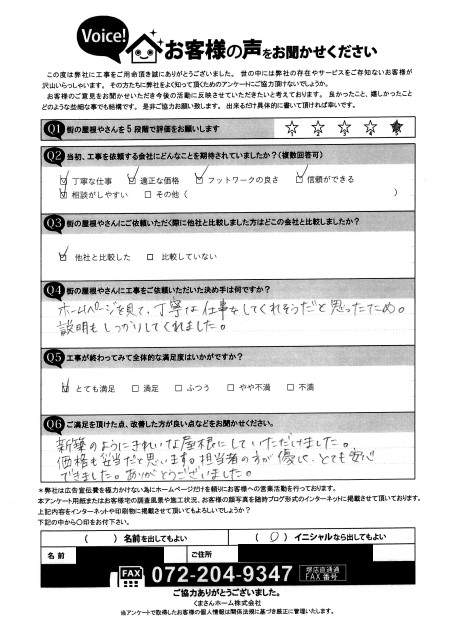 Voice!
お客様の声をお聞かせください
この度は弊社に工事をご用命頂き誠にありがとうございました。世の中には弊社の存在やサービスをご存知ないお客様が
沢山いらっしゃいます。その方たちに弊社をよく知って頂くためのアンケートにご協力頂けないでしょうか。
お客様のご意見をお聞かせいただき今後の活動に反映させていただきたいと考えております。良かったこと、嬉しかったこと
どのような些細な事でも結構です。是非ご協力お願い致します。出来るだけ具体的に書いて頂ければ幸いです。
Q1 街の屋根やさんを5段階で評価をお願いします
1 2 3 4 5
Q2 当初、工事を依頼する会社にどんなことを期待されていましたか?(複数回答可)
丁寧な仕事 適正な価格 フットワークの良さ 信頼ができる
相談がしやすい その他( )
Q3 街の屋根やさんにご依頼いただく際に他社と比較しました方はどこの会社と比較しましたか?
他社と比較した 比較していない
Q4 街の屋根やさんに工事をご依頼いただいた決め手は何ですか?
ホームページを見て、丁寧な仕事をしてくれそうだと思ったため。
説明もしっかりしてくれました。
Q5 工事が終わってみて全体的な満足度はいかがですか?
とても満足 満足 ふつう やや不満 不満
Q6 ご満足を頂けた点、改善した方が良い点などをお聞かせください。
新築のようにきれいな屋根にしていただけました。
価格も妥当だと思います。担当者の方が優しく、とても安心
できました。ありがとうございました。
*弊社は広告宣伝費を極力かけない為にホームページだけを頼りにお客様への営業活動を行っております。
本アンケート用紙またはお客様宅の調査風景や施工状況、お客様の顔写真を随時ブログ形式のインターネットに掲載させて頂いております。
上記内容をインターネットや印刷物に掲載させて頂いてもよろしいでしょうか?
下記の中から〇印をお付下さい。
( ) 名前を出してもよい ( 〇 ) イニシャルなら出してもよい
名前 ご住所
FAX 072-204-9347 堺店直通 FAX番号
ご協力ありがとうございました。
くまさんホーム株式会社
当アンケートで取得したお客様の個人情報は関係法規に基づき厳正に管理いたします。